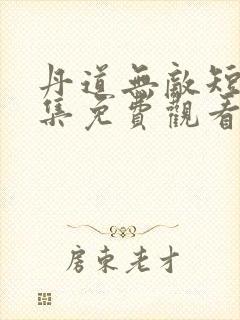 丹道無敵短
集免費觀看
房東老才